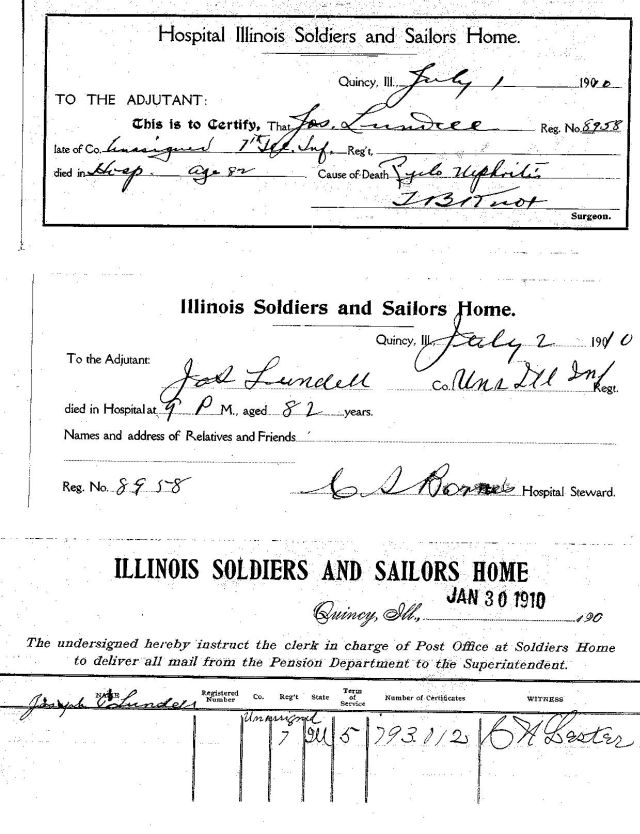 Hospital Illinois Soldiers and Sailors Home.
Quincy, Ill., July 1 1910
TO THE ADJUTANT:
This is to Certify, That Jos. Lundell Reg. No. 8958
late of Co. Unassigned 7th Ill. Inf. Reg't,
died in Hosp. age 82 Cause of Death Pyelo Nephritis
Surgeon.
Illinois Soldiers and Sailors Home.
Quincy, Ill., July 2 1910
To the Adjutant:
Jos Lundell Co. Uns Ill Inf Regt.
died in Hospital at 9 P M., aged 82 years.
Names and address of Relatives and Friends
Reg. No. 8958 C S Hospital Steward.
ILLINOIS SOLDIERS AND SAILORS HOME
JAN 30 1910
Quincy, Ill., 190
The undersigned hereby instruct the clerk in charge of Post Office at Soldiers Home
to deliver all mail from the Pension Department to the Superintendent.
NAME Registered Number Co. Reg't State Term of Service Number of Certificates WITNESS
Joseph Lundell
Unassigned
7 Ill 5 793.012 C H Lester